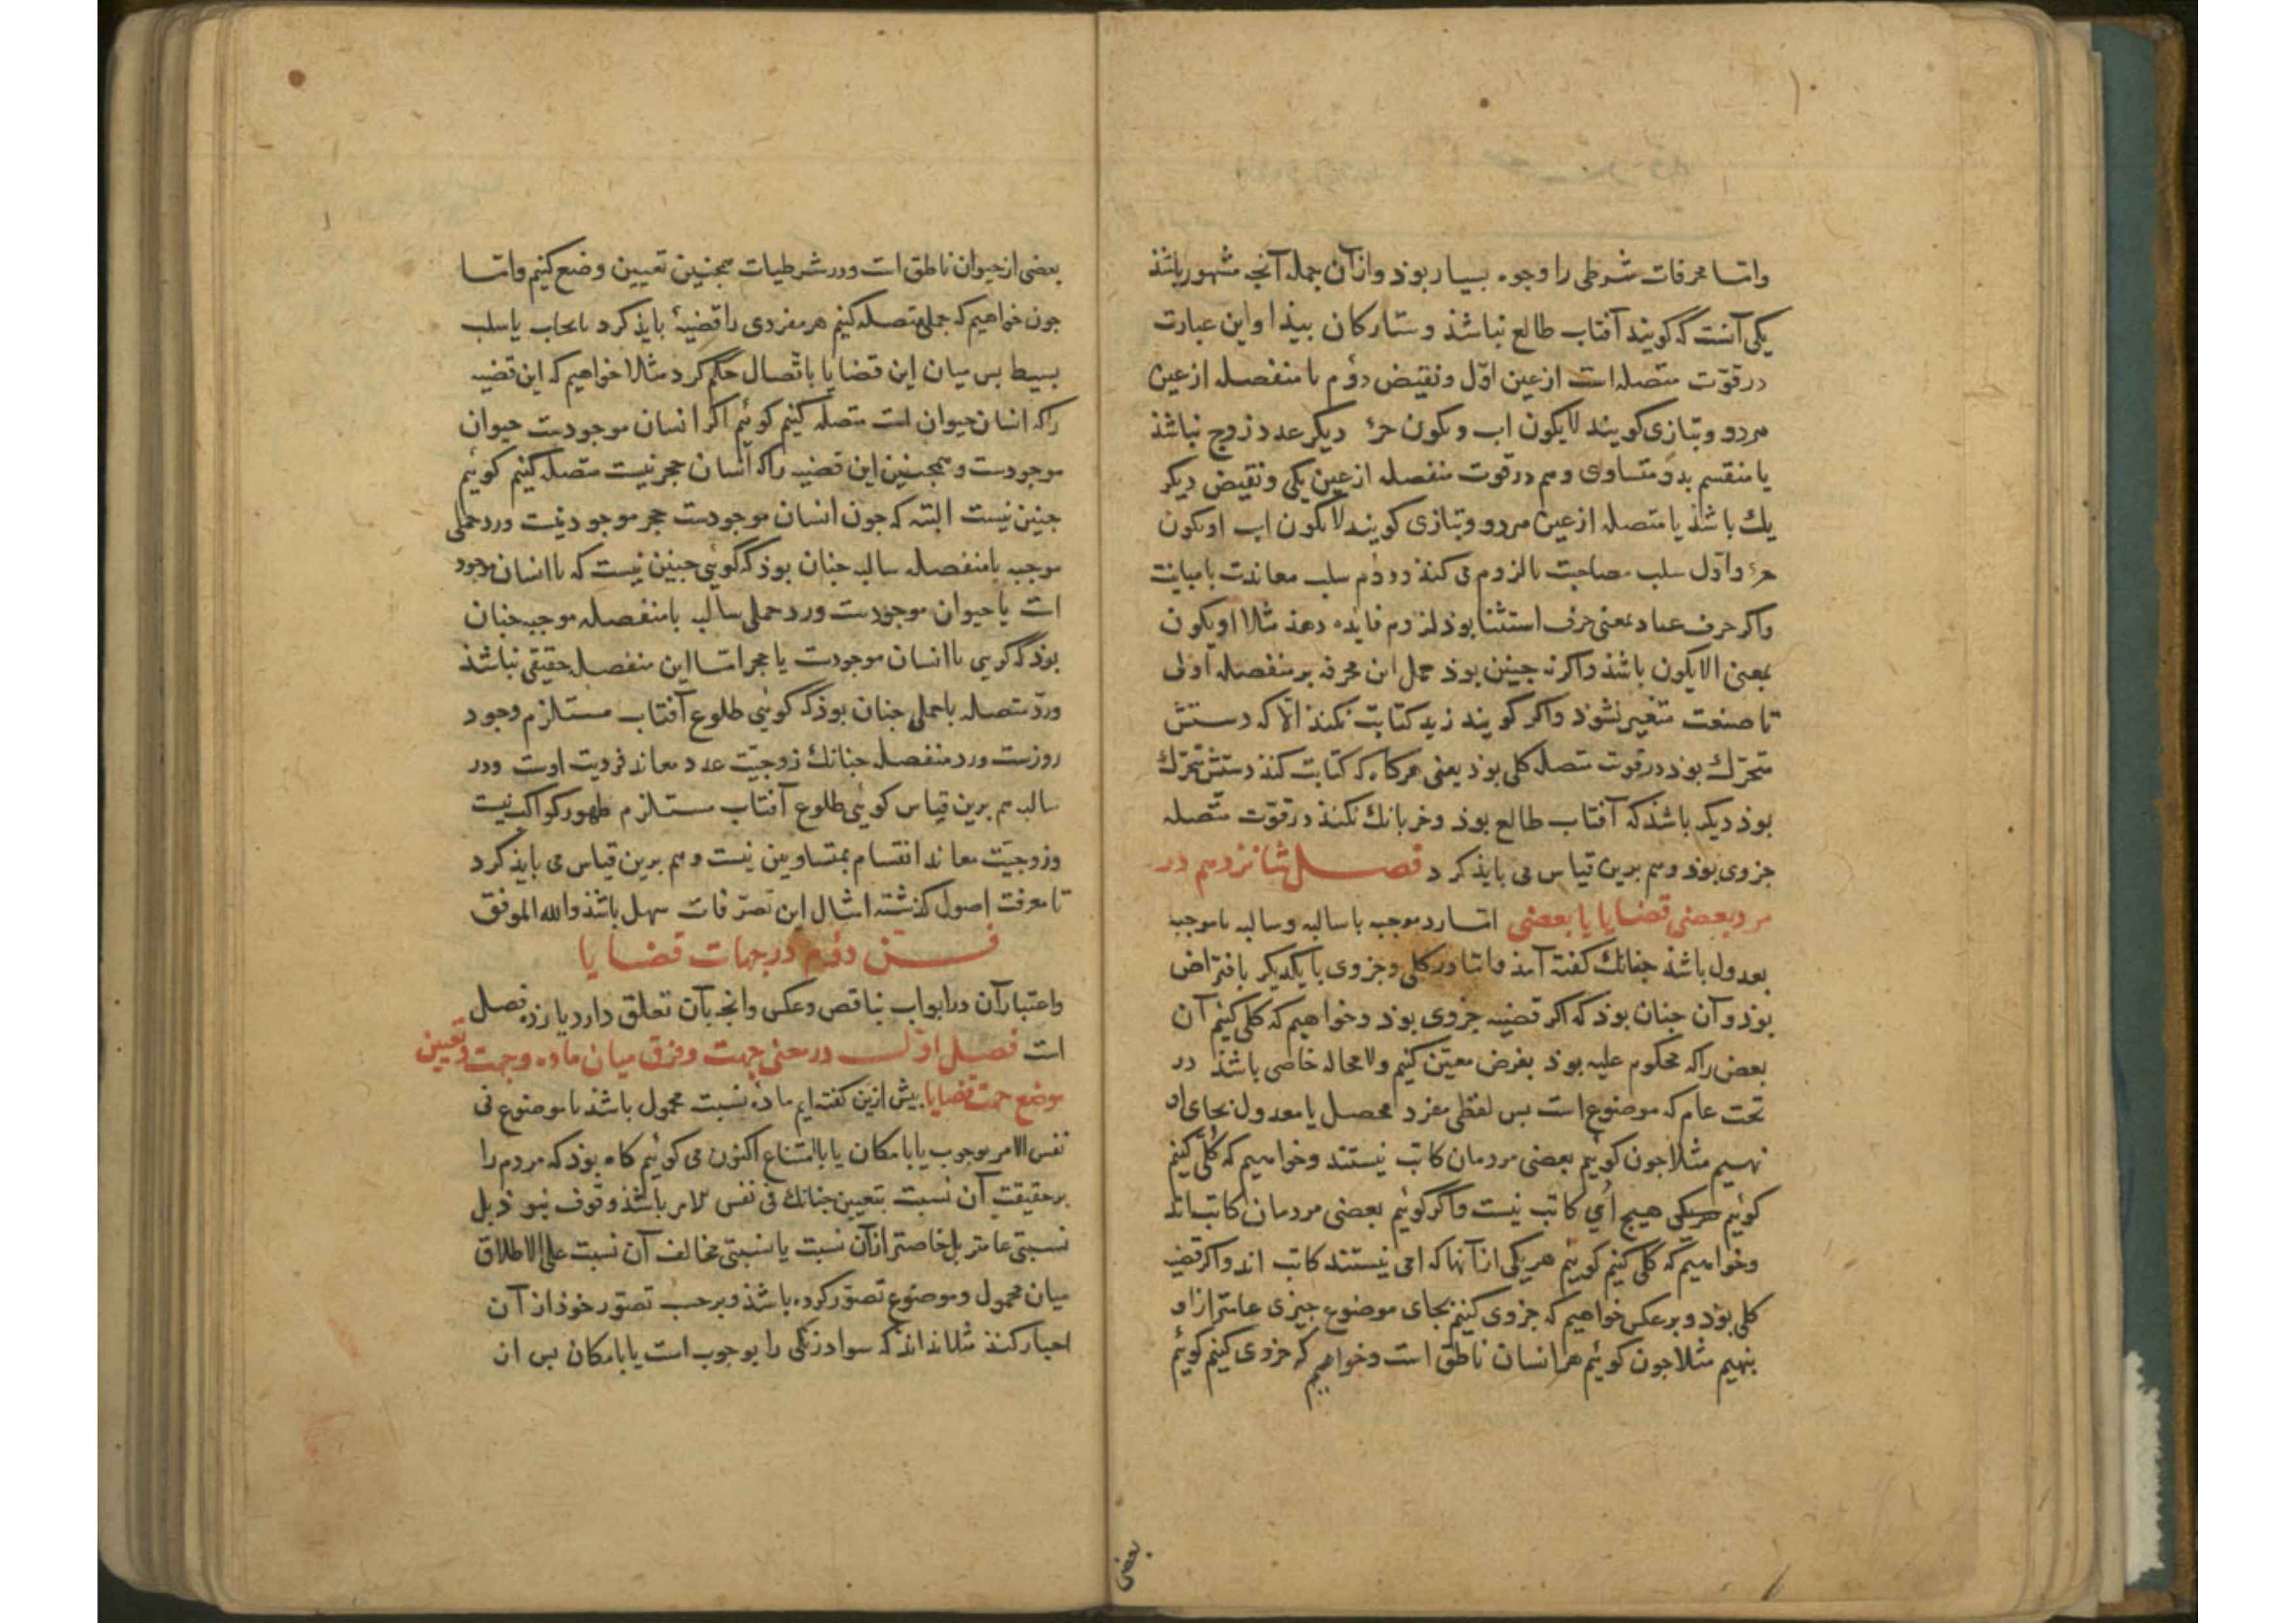 واما محرفات شرطی را وجوه بسیار بوذ وازان جمله آنجه مشهور باشذ
یکی آنست که کویند آفتاب طالع نباشذ وستارکان بیذا واین عبارت
درقوّت متصله است ازعین اوّل ونقیض دوُم یا منفصله ازعین
هردو وبتازی کویند لایکون اب ویکون حرء دیکر عدد زوج نباشذ
یا منقسم بدو متساوی وهم درقوت منفصله ازعین یکی ونقیض دیکر
یك باشذ یا متصله ازعین هردو وبتازی کویند لایکون اب اویکون
حرء واوّل سلب مصاحبت یا لزوم می کند ودوُم سلب معاندت یا مباینت
واکر حرف عناد بمعنی حرف استثنا بوذ لزوم فایده دهذ مثلا اویکون
بمعنی الایکون باشذ واکرنه جنین بوذ حمل این محرفه برمنفصله اولی
تا صنعت متغیر نشوذ واکر کویند زید کتابت نکند الّا که دستش
متحرّك بوذ درقوت متصله کلی بوذ یعنی هرکاه که کتابت کند دستش متحرّك
بوذ دیکر باشذ که آفتاب طالع بوذ وخر بانك نکند درقوّت متّصله
جزوی بوذ وهم برین قیاس می بایذ کرد فصل شانزدهم در
رد بعضی قضایا با بعضی اما رد موجبه با سالبه وسالبه با موجبه
بعدول باشذ جنانك کفته آمذ واما ردکلی وجزوی با یکدیکر بافتراض
بوذ وآن جنان بوذ که اکر قضیه جزوی بوذ وخواهیم که کلی کنیم آن
بعض راکه محکوم علیه بوذ بفرض معیّن کنیم ولامحاله خاصی باشذ در
تحت عام که موضوع است بس لفظی مفرد محصل یا معدول بجای او
نهیم مثلا جون کوئیم بعضی مردمان کاتب نیستند وخواهیم که کلّی کنیم
کوئیم هیج امی کاتب نیست واکر کوئیم بعضی مردمان کاتب اند
وخواهیم که کلی کنیم کوئیم هریکی ازانها که امی نیستند کاتب اند واکر قضیه
کلی بوذ وبرعکس خواهیم که جزوی کنیم بجای موضوع جیزی عامتر ازاو
بنهیم مثلا جون کوئیم هرانسان ناطق است وخواهیم که جزوی کنیم کوئیم
بعضی
بعضی ازحیوان ناطق است ودر شرطیات همجنین تعیین وضع کنیم واما
جون خواهیم که حملی متصله کنیم هرمفردی را قضیهٔ بایذ کرد بایجاب یا سلب
بسیط بس میان این قضایا باتّصال حکم کرد مثلا خواهیم که این قضیه
راکه انسان حیوان است متصله کنیم کوئیم اکر انسان موجودست حیوان
موجودست وهمجنین این قضیه راکه انسان حجر نیست متصله کنیم کوئیم
جنین نیست البته که جون انسان موجودست حجر موجود نیست ورد حملی
موجبه بامنفصله سالبه جنان بوذ که کوئی جنین نیست که یا انسان موجود
است یا حیوان موجودست ورد حملی سالبه بامنفصله موجبه جنان
بوذ که کویی یا انسان موجودست یا حجر امّا این منفصله حقیقی نباشذ
وردّ متصله باحملی جنان بوذ که کوئی طلوع آفتاب مستلزم وجود
روزست ورد منفصله جنانك زوجیّت عدد معاند فردیت اوست ودر
سالبه هم برین قیاس کوئی طلوع آفتاب مستلزم ظهور کواکب نیست
وزوجیّت معاند انقسام بمتساویین نیست وهم برین قیاس می بایذ کرد
تا معرفت اصول کذشته امثال این تصرّفات سهل باشذ والله الموفق
فن دوُم درجهات قضایا
واعتبارآن درابواب تناقض وعکس وانجه بآن تعلق دارد یازده فصل
است فصل اوّل درمعنی جهت وفرق میان ماده وجهت وتعیین
موضع جهت قضایا بیش ازین کفته ایم مادّه نسبت محمول باشذ با موضوع فی
نفس الامر بوجوب یا بامکان یا بامتناع اکنون می کوئیم کاه بوذ که مردم را
برحقیقت آن نسبت بتعیین جنانك فی نفس الامر باشذ وقوف نبوذ بل
نسبتی عامتر بل خاصتر ازآن نسبت یا نسبتی مخالف آن نسبت علی الاطلاق
میان محمول وموضوع تصوّر کرده باشذ وبرحسب تصوّر خوذ ازآن
اخبار کنذ مثلا نداند که سواد زنکی را بوجوب است یا بامکان بس ان